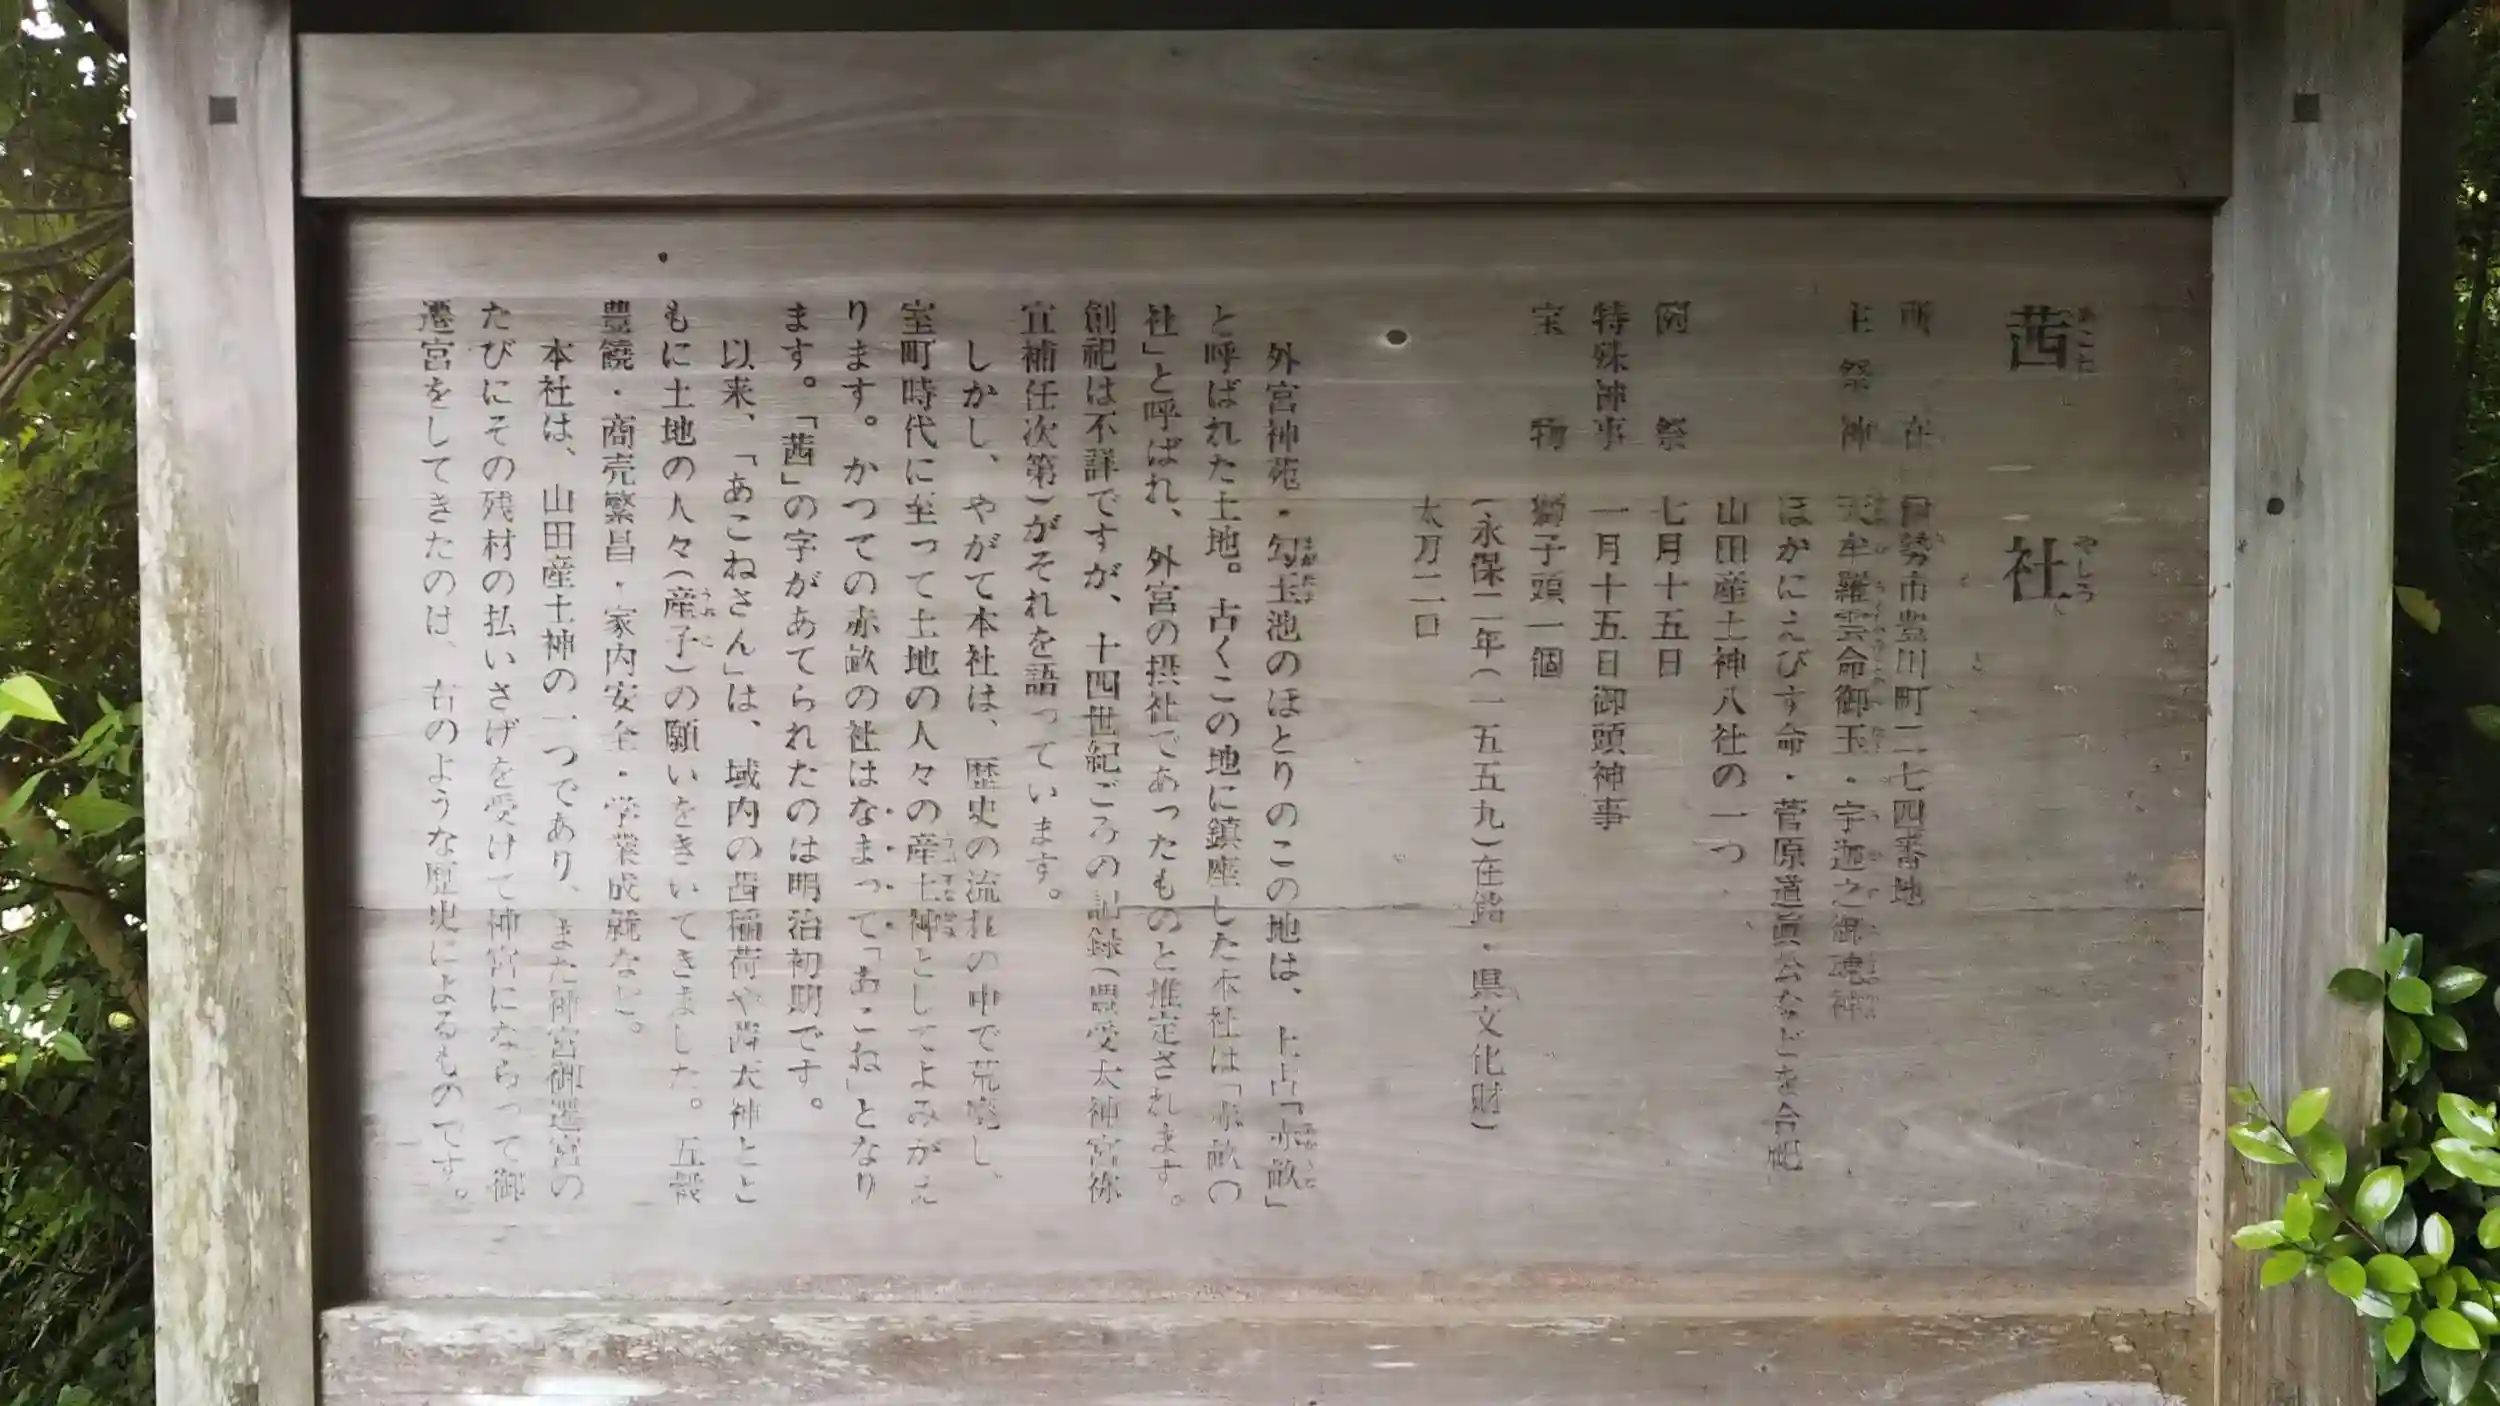 茜社
所在 伊勢市豊川町二七四番地
主祭神 天牟羅雲命御玉・宇迦之御魂神
ほかにえびす命・菅原道眞公などを合祀
山田産土神八社の一つ
例祭 七月十五日
特殊神事 一月十五日御頭神事
宝物 獅子頭一個
(永保二年(一五五九)在銘・県文化財)
太刀二口
外宮神苑・勾玉池のほとりのこの地は、上古「赤畝」
と呼ばれた土地。古くこの地に鎮座した本社は「赤畝(
社」と呼ばれ、外宮の摂社であったものと推定されます。
創祀は不詳ですが、十四世紀ごろの記録(豊受太神宮祢
宜補任次第)がそれを語っています。
しかし、やがて本社は、歴史の流れの中で荒廃し、
室町時代に至って土地の人々の産土神としてよみがえ
ります。かつての赤畝の社はなまって「あこね」となり
ます。「茜」の字があてられたのは明治初期です。
以来、「あこねさん」は、域内の茜稲荷や茜天神とと
もに土地の人々(産子)の願いをきいてきました。五穀
豊饒・商売繁昌・家内安全・学業成就など。
本社は、山田産土神の一つであり、また神宮御遷宮の
たびにその残材の払いさげを受けて神宮にならって御
遷宮をしてきたのは、右のような歴史によるものです。